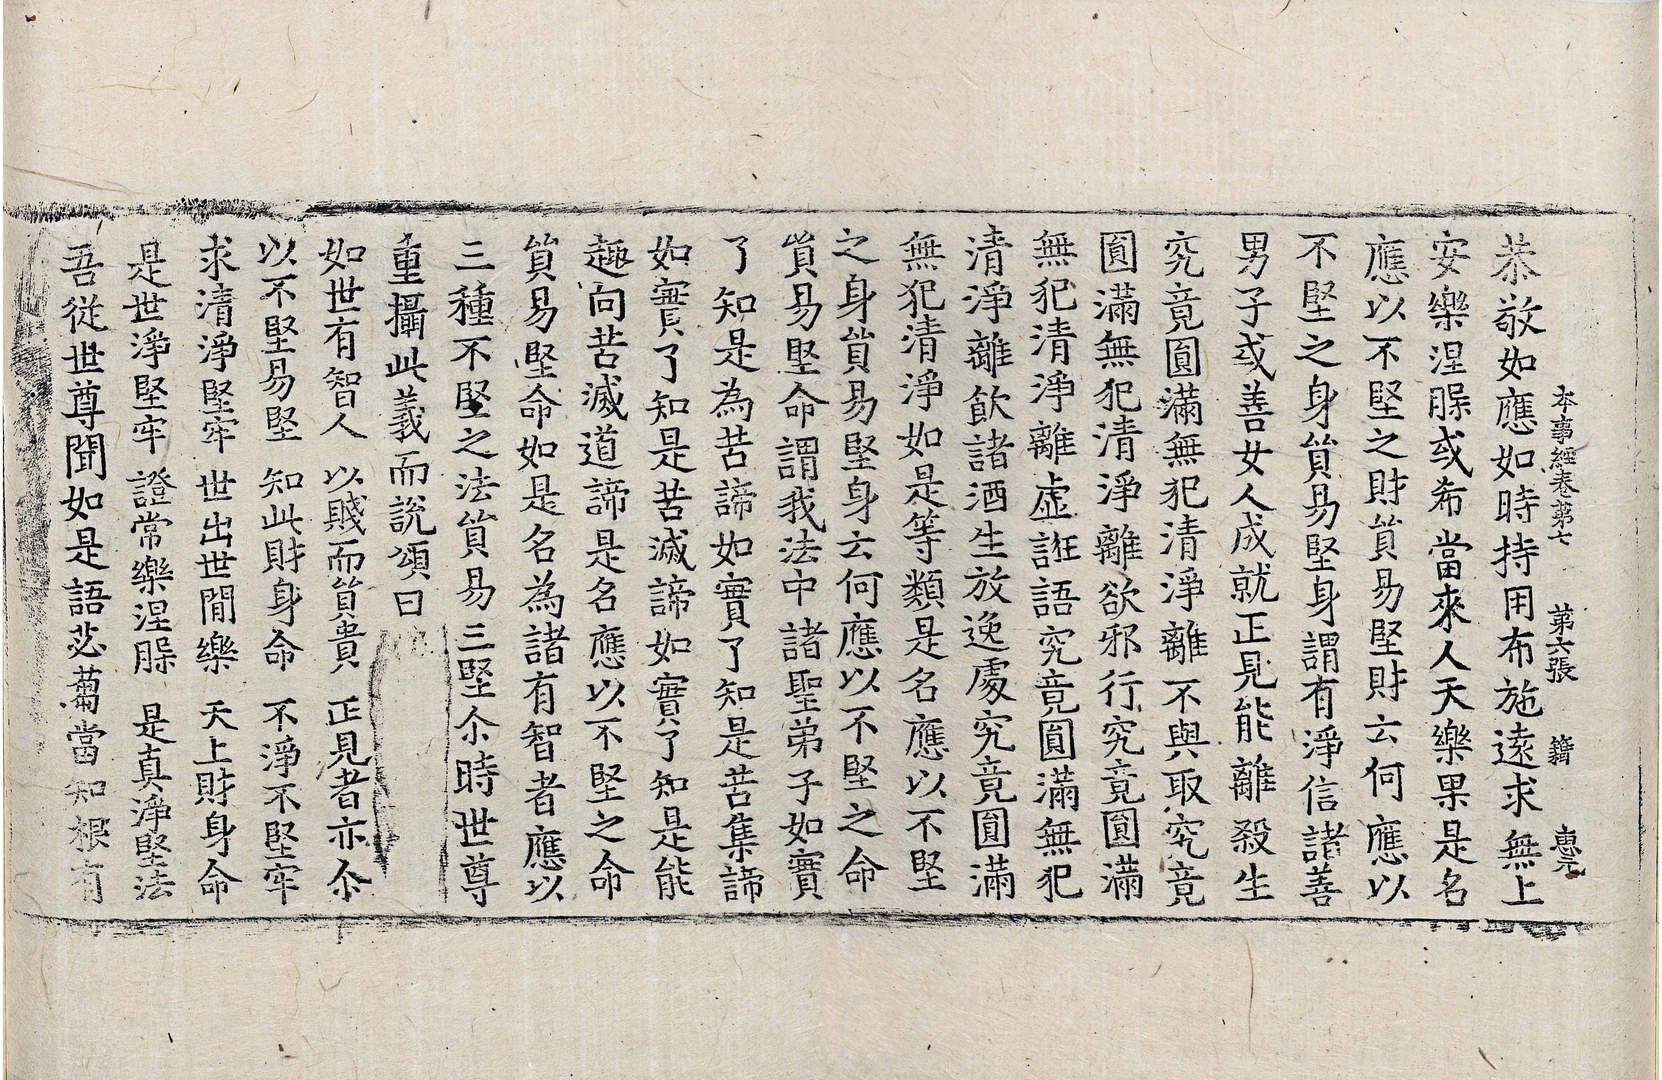 本事經卷第七 第六張 籍 惠元
恭敬如應如時持用布施遠求無上
安樂涅槃或希當來人天樂果是名
應以不堅之財貿易堅財云何應以
不堅之身貿易堅身謂有淨信諸善
男子或善女人成就正見能離殺生
究竟圓滿無犯清淨離不與取究竟
圓滿無犯清淨離欲邪行究竟圓滿
無犯清淨離虛誑語究竟圓滿無犯
清淨離飲諸酒生放逸處究竟圓滿
無犯清淨如是等類是名應以不堅
之身貿易堅身云何應以不堅之命
貿易堅命謂我法中諸聖弟子如實
了知是為苦諦如實了知是苦集諦
如實了知是苦滅諦如實了知是能
趣向苦滅道諦是名應以不堅之命
貿易堅命如是名為諸有智者應以
三種不堅之法貿易三堅尒時世尊
重攝此義而說頌曰
如世有智人 以賤而貿貴 正見者亦尒
以不堅易堅 知此財身命 不淨不堅牢
求清淨堅牢 世出世間樂 天上財身命
是世淨堅牢 證常樂涅槃 是真淨堅法
吾從世尊聞如是語苾蒭當知根有